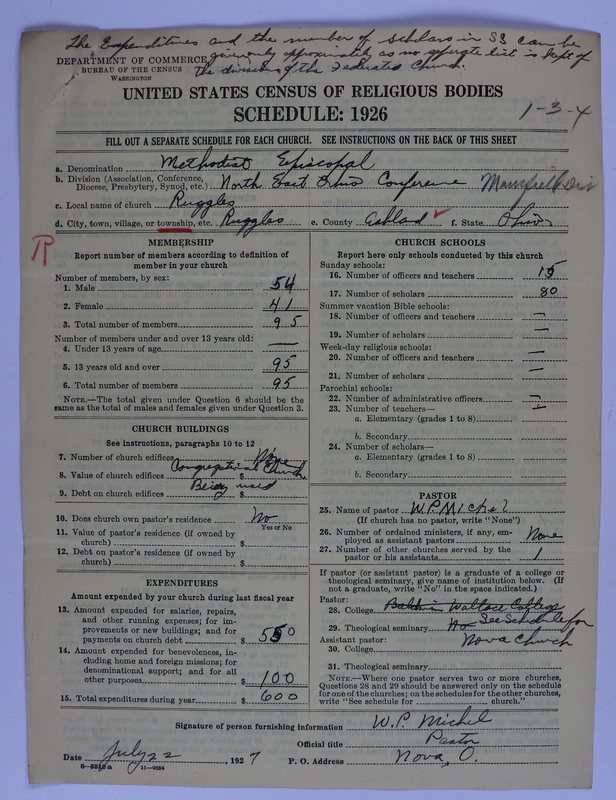 The Expenditures and the number of scholars in SS can be
given only approximately as no seperate list is kept of
the divisions of the Federated Church.
DEPARTMENT OF COMMERCE
BUREAU OF THE CENSUS
WASHINGTON
UNITED STATES CENSUS OF RELIGIOUS BODIES
SCHEDULE: 1926
1-3-4
FILL OUT A SEPARATE SCHEDULE FOR EACH CHURCH. SEE INSTRUCTIONS ON THE BACK OF THIS SHEET
a. Denomination Methodist Episcopal
b. Division (Association, Conference, Diocese, Presbytery, Synod, etc.) North East Ohio Conference Mansfield Dis
c. Local name of church Ruggles
d. City, town, village, or township, etc. Ruggles e. County Ashland ✓ f. State Ohio
R
MEMBERSHIP
Report number of members according to definition of
member in your church
Number of members, by sex:
1. Male 54
2. Female 41
3. Total number of members 95
Number of members under and over 13 years old:
4. Under 13 years of age —
5. 13 years old and over 95
6. Total number of members 95
NOTE.—The total given under Question 6 should be
same as the total of males and females given under Question 3.
CHURCH BUILDINGS
See instructions, paragraphs 10 to 12
7. Number of church edifices None
8. Value of church edifices $ Congregational Church
9. Debt on church edifices $ Being used
10. Does church own pastor's residence No
Yes or No
11. Value of pastor's residence (if owned by
church) $
12. Debt on pastor's residence (if owned by
church) $
EXPENDITURES
Amount expended by your church during last fiscal year
13. Amount expended for salaries, repairs,
and other running expenses; for im-
provements or new buildings; and for
payments on church debt $ 550
14. Amount expended for benevolences, in-
cluding home and foreign missions; for
denominational support; and for all
other purposes $ 100
15. Total expenditures during year $ 600
CHURCH SCHOOLS
Report here only schools conducted by this church
Sunday schools:
16. Number of officers and teachers 15
17. Number of scholars 80
Summer vacation Bible schools:
18. Number of officers and teachers —
19. Number of scholars —
Week-day religious schools:
20. Number of officers and teachers —
21. Number of scholars —
Parochial schools:
22. Number of administrative officers —
23. Number of teachers— —
a. Elementary (grades 1 to 8)
b. Secondary
24. Number of scholars—
a. Elementary (grades 1 to 8)
b. Secondary
PASTOR
25. Name of pastor W.P. Michel
(If church has no pastor, write "None")
26. Number of ordained ministers, if any, em-
ployed as assistant pastors None
27. Number of other churches served by the
pastor or his assistants 1
If pastor (or assistant pastor) is a graduate of a college or
theological seminary, give name of institution below. (If
not a graduate, write "No" in the space indicated.)
Pastor:
28. College Baldwin Wallace College
29. Theological seminary No See Schedule for
Assistant pastor: Nova Church
30. College
31. Theological seminary
NOTE.—Where one pastor serves two or more churches,
Questions 28 and 29 should be answered only on the schedule
for one of the churches; on the schedules for the other churches,
write "See schedule for church."
Signature of person furnishing information W.P. Michel
Official title Pastor
Date July 22, 1927 P. O. Address Nova, O.
11—9084